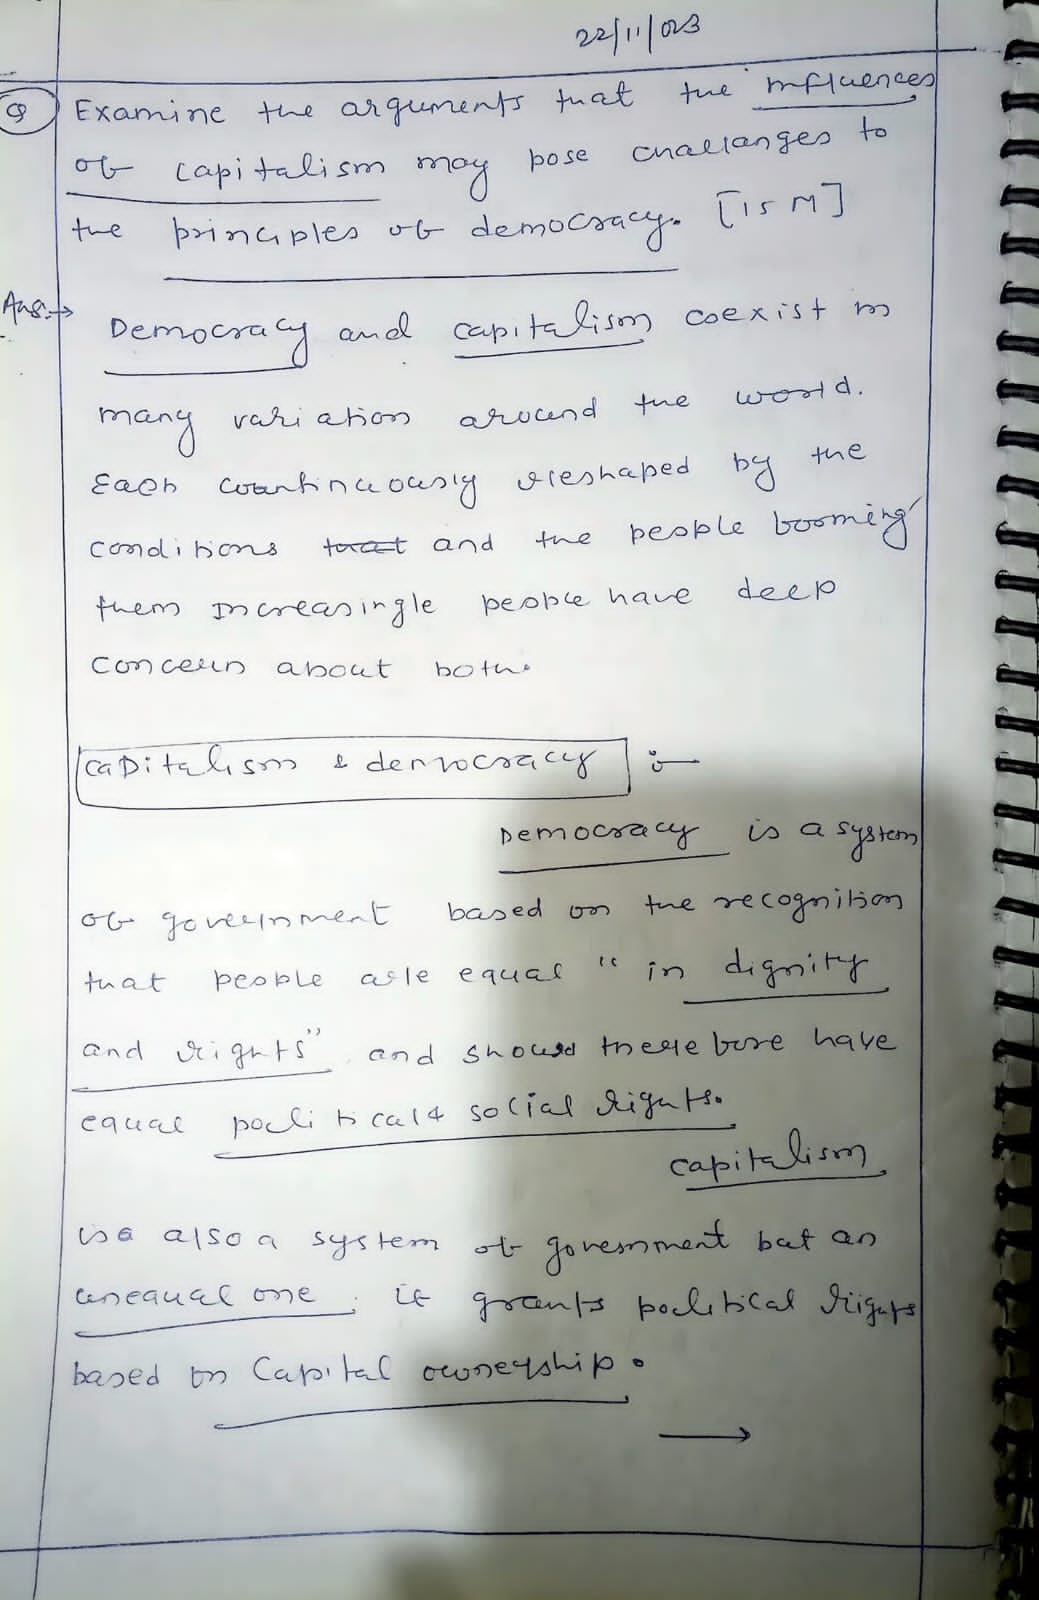 22/11/023
Q Examine the arguments that the influences
of capitalism may pose challanges to
the principles of democracy. [15 M]
Ans:→ Democracy and capitalism coexist in
many variation around the world.
Each countinuously reshaped by the
conditions that and the people booming
them increasingle people have deep
concern about both.
Capitalism & democracy :-
Democracy is a system
of government based on the recognition
that people are equal " in dignity
and rights" and should therefore have
equal political & social rights.
capitalism
is a also a system of government but an
unequal one . it grants political rights
based on Capital ownership.
→